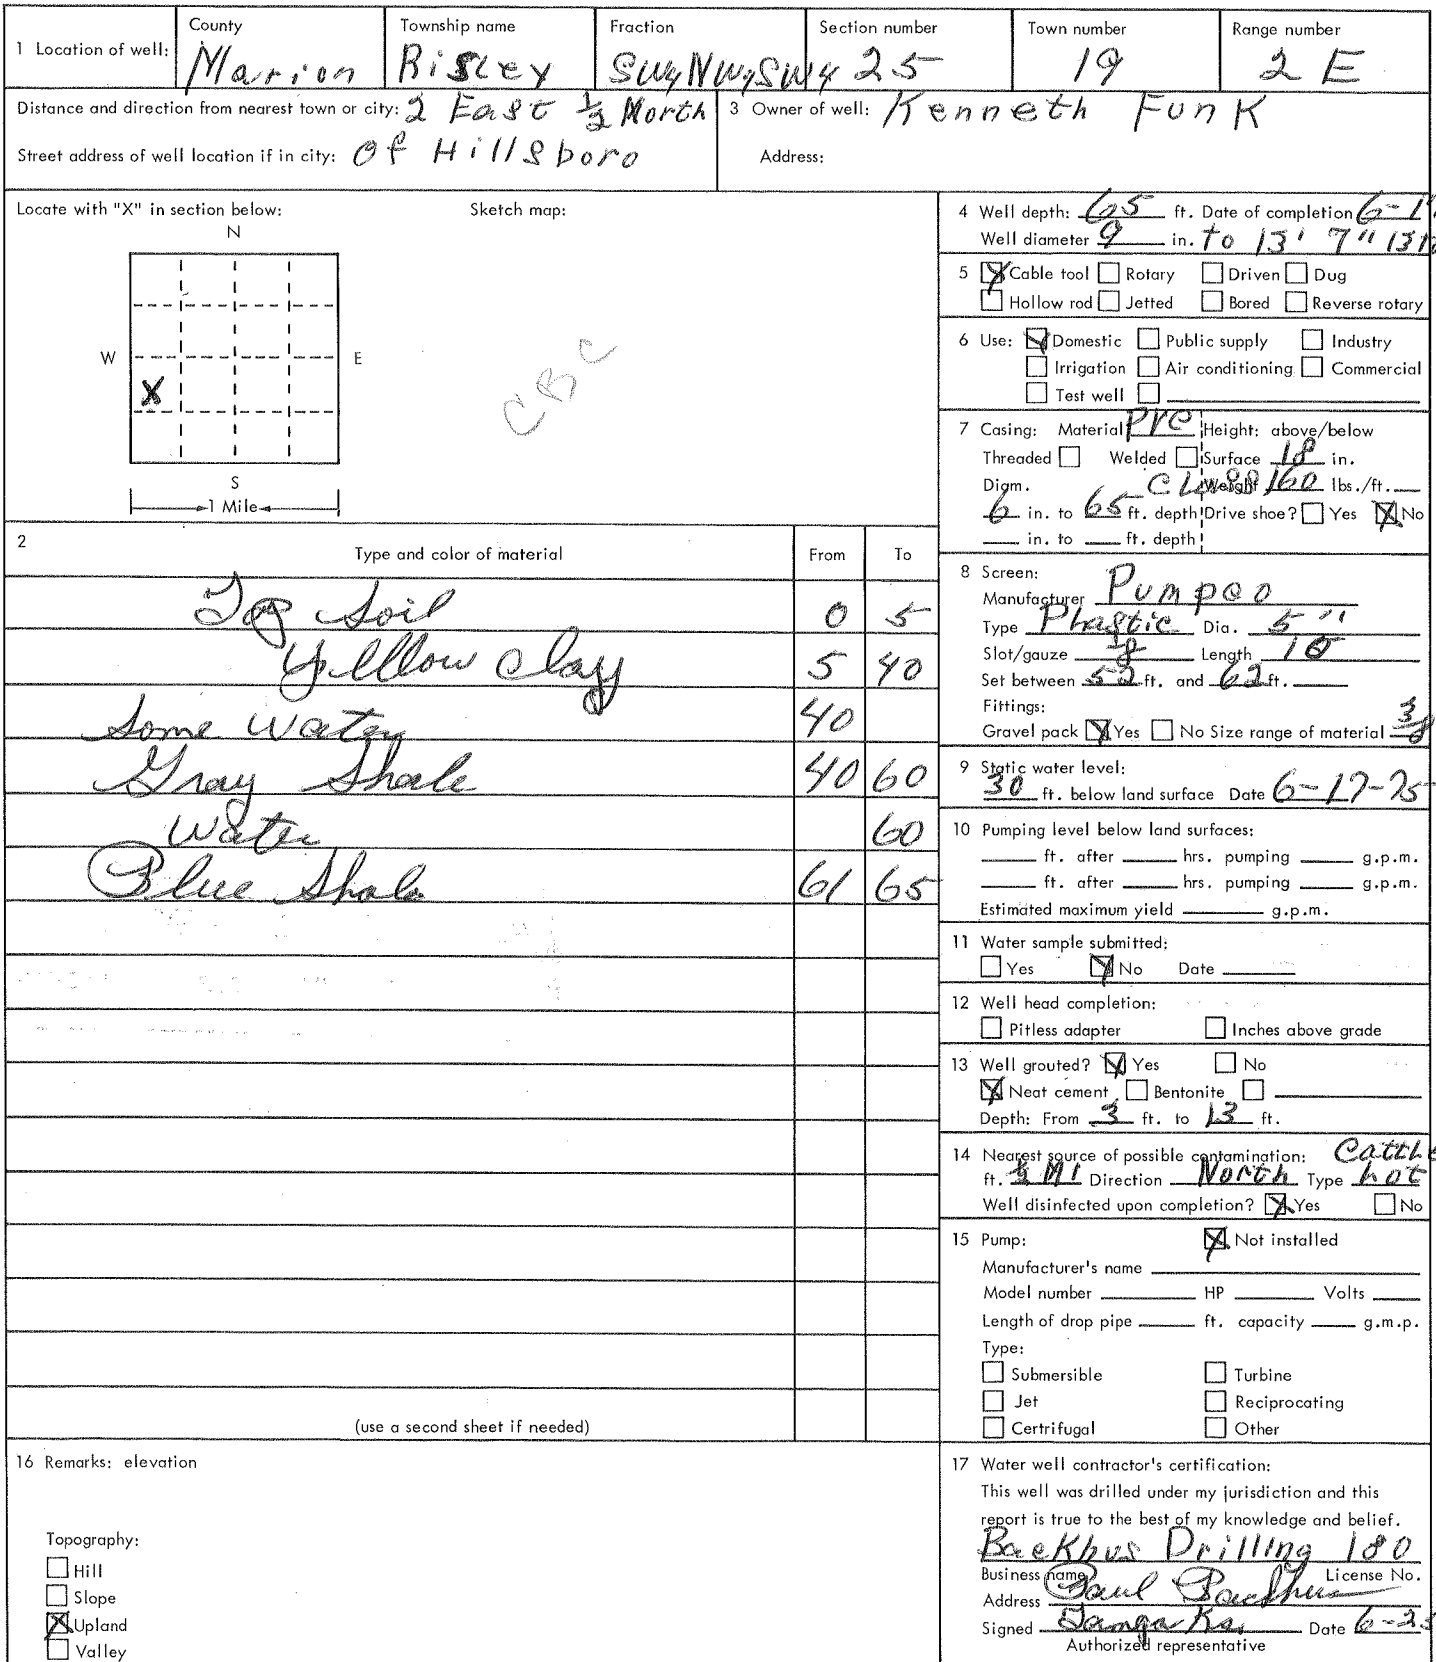 1 Location of well: County Township name Fraction Section number Town number Range number
Marion Risley SW¼NW¼SW¼ 25 19 2 E
Distance and direction from nearest town or city: 2 East ½ North
Street address of well location if in city: Of Hillsboro
3 Owner of well: Kenneth Funk
Address:
Locate with "X" in section below: Sketch map:
N
W E
X
S
1 Mile
CBC
2 Type and color of material From To
Top Soil 0 5
Yelllow Clay 5 40
Some Water 40
Gray Shale 40 60
Water 60
Blue Shale 61 65
(use a second sheet if needed)
4 Well depth: 65 ft. Date of completion 6-1
Well diameter 9 in. to 13' 7" 13 to
5 X Cable tool Rotary Driven Dug
Hollow rod Jetted Bored Reverse rotary
6 Use: X Domestic Public supply Industry
Irrigation Air conditioning Commercial
Test well
7 Casing: Material PVC Height: above/below
Threaded Welded Surface 18 in.
Diam. Class Weight 160 lbs./ft.
6 in. to 65 ft. depth Drive shoe? Yes X No
in. to ft. depth
8 Screen:
Manufacturer Pumpco
Type Plastic Dia. 5"
Slot/gauze ⅛ Length 10
Set between 52 ft. and 62 ft.
Fittings:
Gravel pack X Yes No Size range of material 3/8
9 Static water level:
30 ft. below land surface Date 6-17-75
10 Pumping level below land surfaces:
ft. after hrs. pumping g.p.m.
ft. after hrs. pumping g.p.m.
Estimated maximum yield g.p.m.
11 Water sample submitted:
Yes X No Date
12 Well head completion:
Pitless adapter Inches above grade
13 Well grouted? X Yes No
X Neat cement Bentonite
Depth: From 3 ft. to 13 ft.
14 Nearest source of possible contamination: Cattle
ft. Mi Direction North Type Lot
Well disinfected upon completion? X Yes No
15 Pump: X Not installed
Manufacturer's name
Model number HP Volts
Length of drop pipe ft. capacity g.m.p.
Type:
Submersible Turbine
Jet Reciprocating
Certrifugal Other
16 Remarks: elevation
Topography:
Hill
Slope
X Upland
Valley
17 Water well contractor's certification:
This well was drilled under my jurisdiction and this
report is true to the best of my knowledge and belief.
Backhus Drilling 180
Business name License No.
Address Paul Backhus
Signed Tampa Ks. Date 6-23
Authorized representative